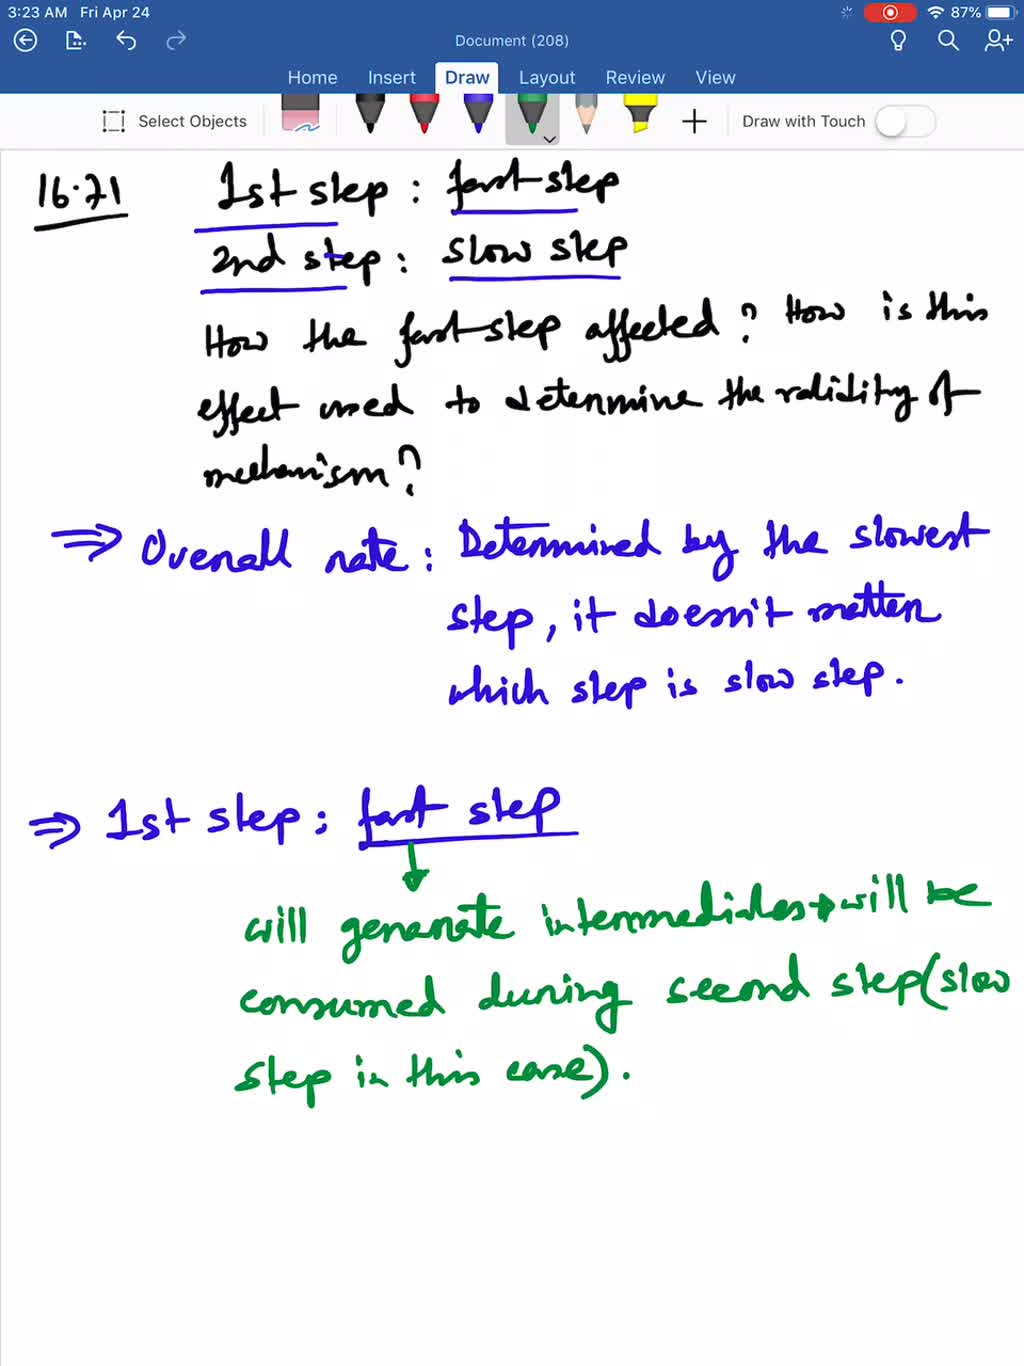 3:23 AM Fri Apr 24
87%
Document (208)
Home Insert Draw Layout Review View
Select Objects
Draw with Touch
16.71 1st step : fast step
2nd step : slow step
How the fast step affected? How is this
effect used to determine the validity of
mechanism?
⇒ Overall rate : Determined by the slowest
step, it doesn't matter
which step is slow step.
⇒ 1st step : fast step
↓
will generate intermediates → will be
consumed during second step (slow
step in this case).